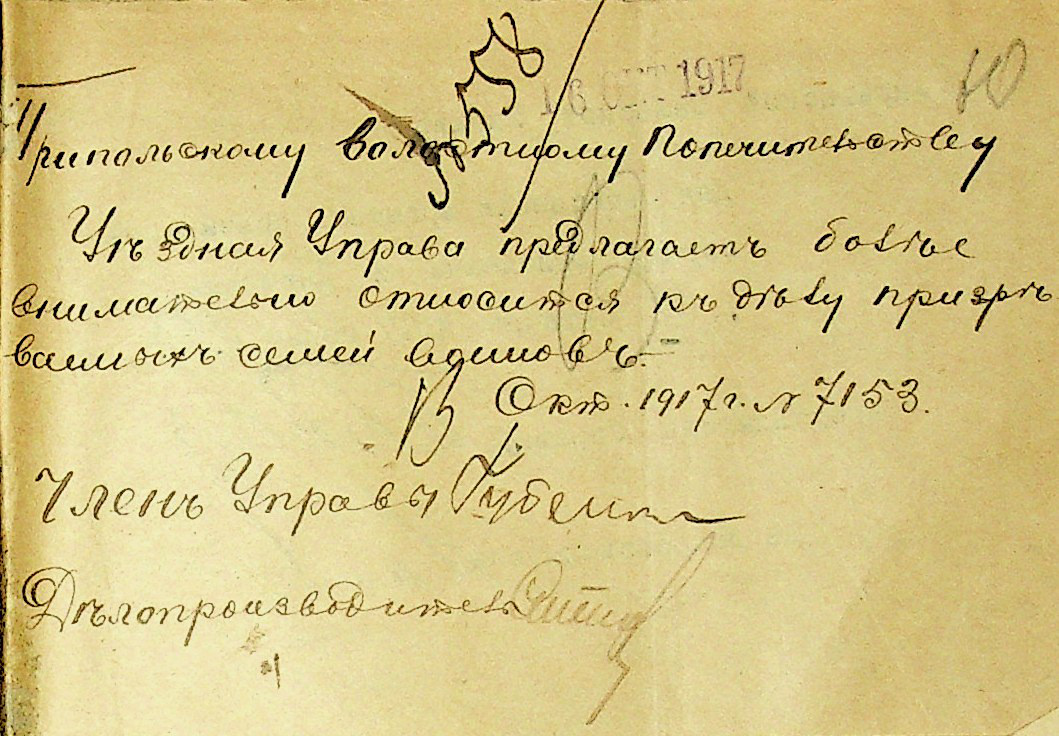 16 ОКТ 1917
Трипольскому Волостному Попечительству
Уѣздная Управа предлагаетъ болѣе
внимательно относится къ дѣлу призрѣ
ваемыхъ семей воиновъ.
Окт. 1917 г. № 7153.
Членъ Управы
Дѣлопроизводитель